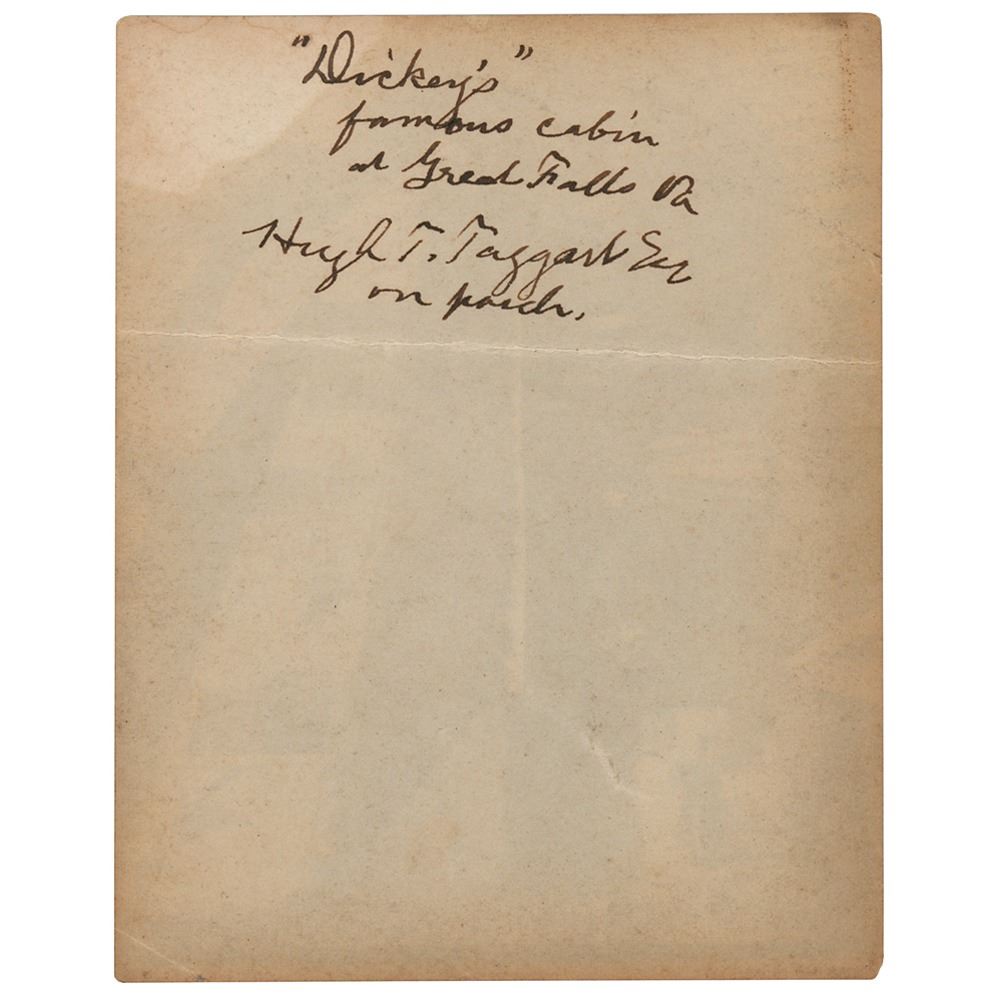 "Dickey's"
famous cabin
at Great Falls Va
Hugh T. Taggart Esq
on porch.